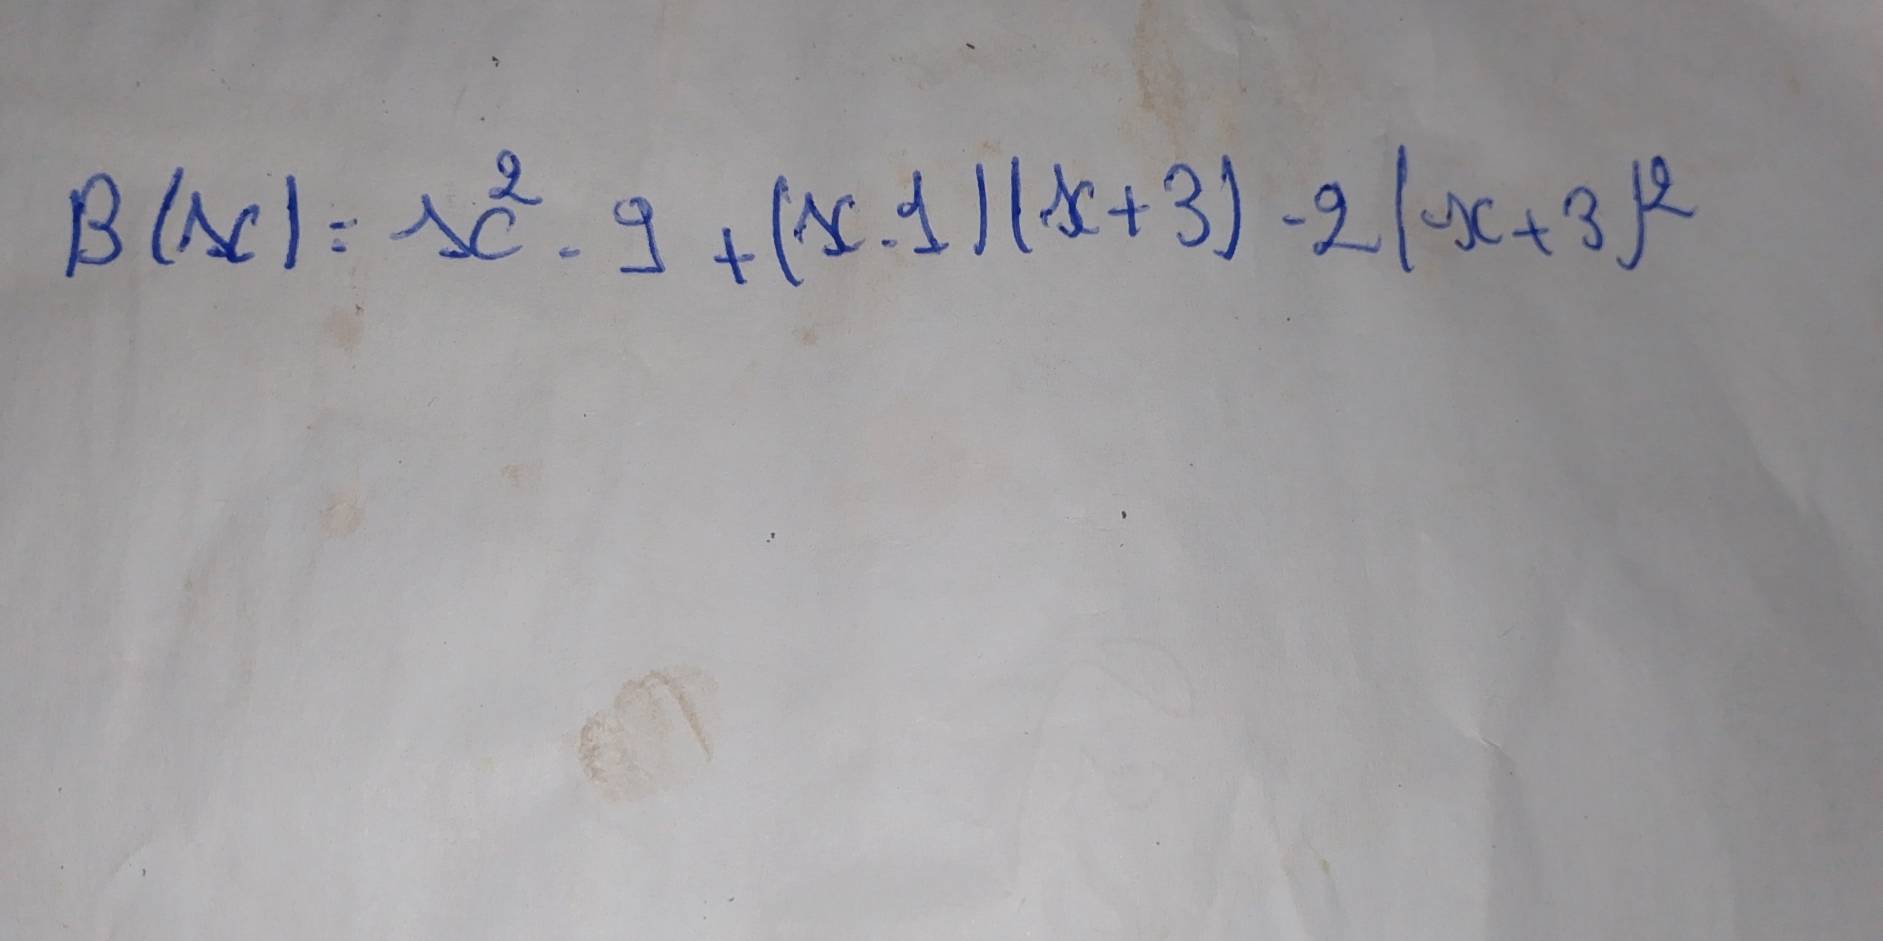 B(x) = x² - 9 + (x-1)(x+3) -2(x+3)²